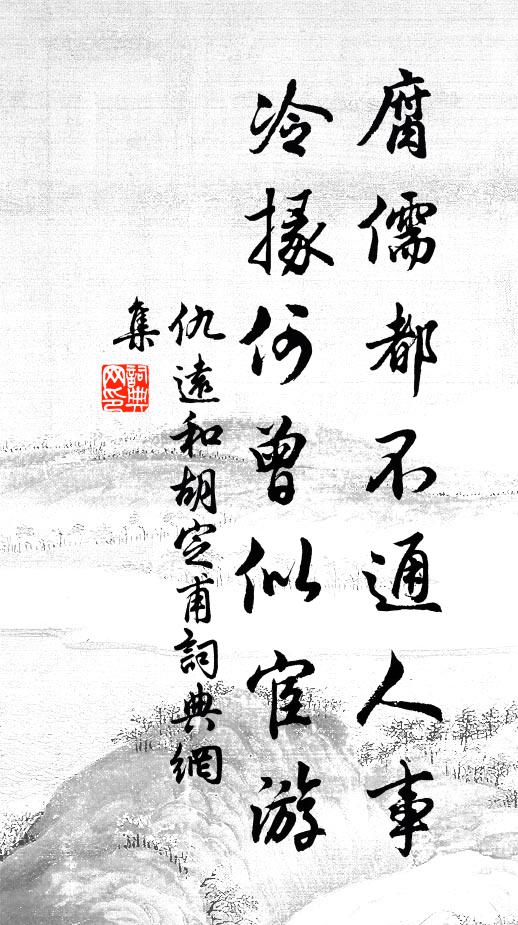 腐儒都不通人事
冷掾何曾似宦游
仇遠和胡定甫詞典網
集
詞典
网印